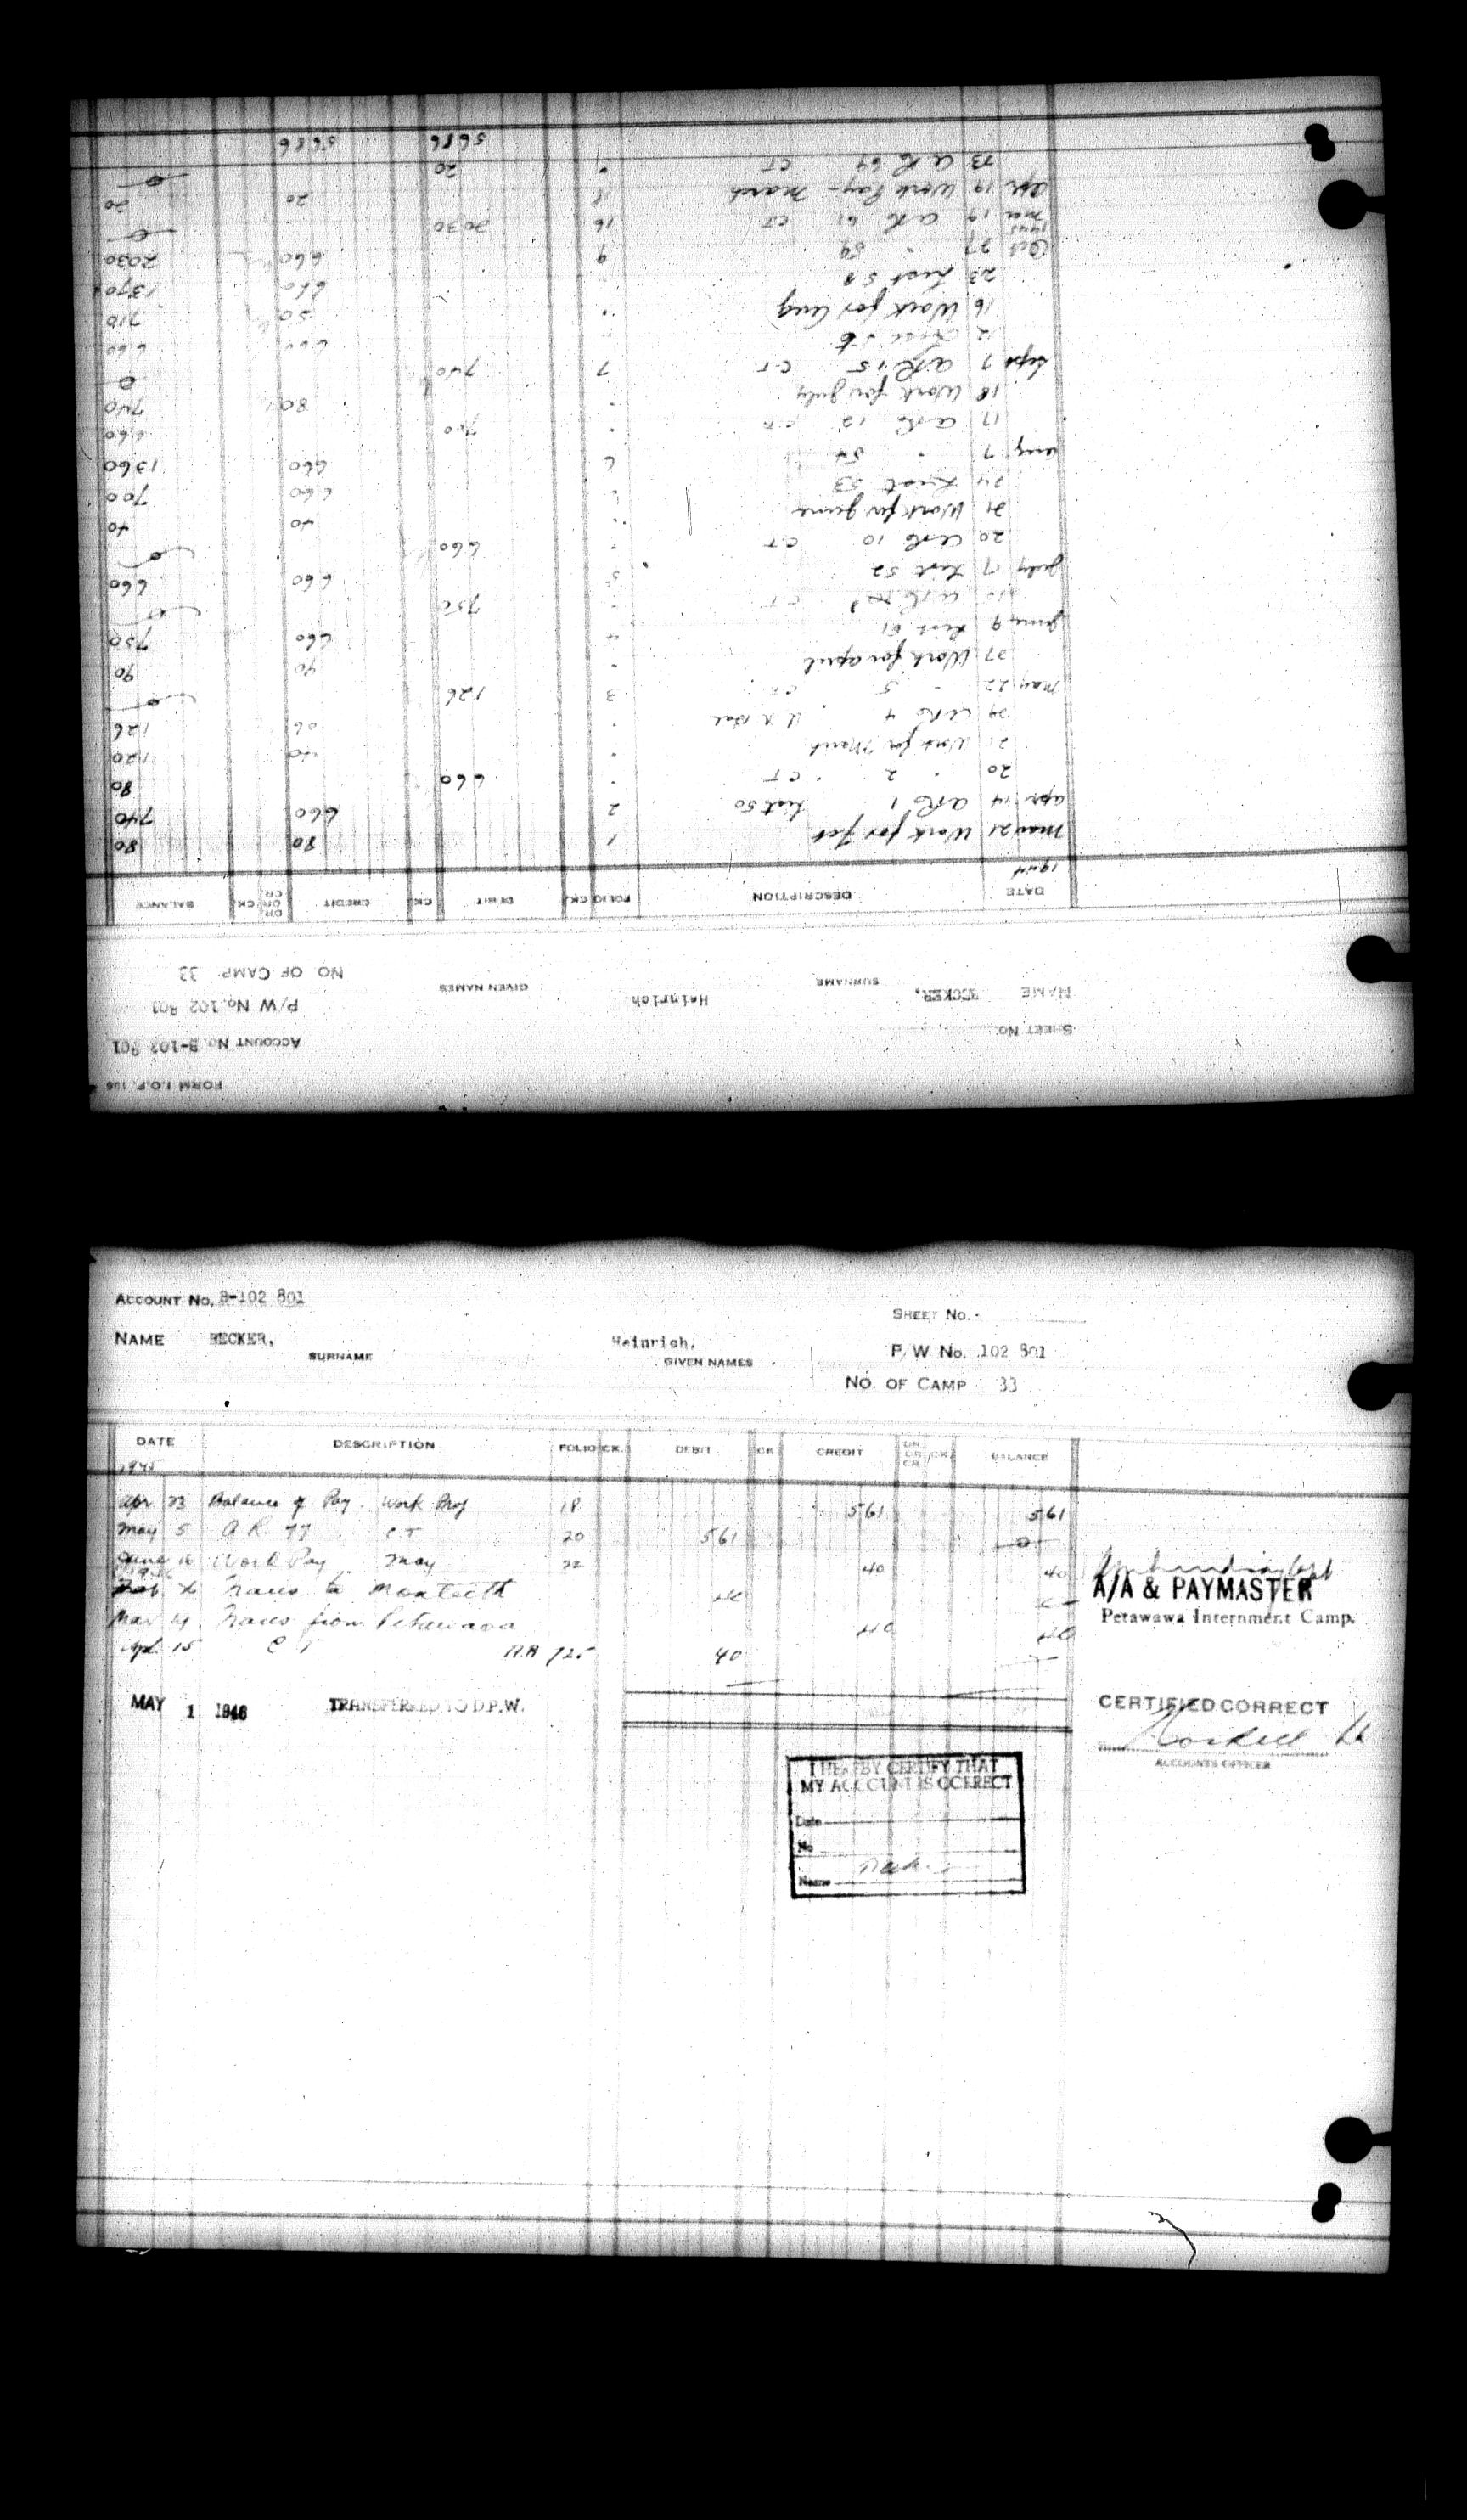 FORM I.O.F. 106
ACCOUNT No. B-102 801
SHEET No.
P/W No. 102 801
NAME BECKER, Heinrich
SURNAME GIVEN NAMES
NO OF CAMP 33
DATE DESCRIPTION FOLIO CK. DEBIT CK. CREDIT DR. OR CR. CK. BALANCE
1944
Mar 21 Work for Feb 1 80 80
Apr 14 AR 1 List 50 2 660 740
20 " 2 " CT " 660 80
21 Work for March " 40 120
24 AR 4 " 06 126
May 22 " 5 CT 3 126 0
27 Work for April " 90 90
June 9 List 51 4 660 750
AR CT " 750 0
July 17 List 52 5 660 660
20 AR 10 CT " 660 0
21 Work for June " 40 40
24 List 53 " 660 700
Aug 7 " 54 6 660 1360
17 AR 12 CT " 700 660
18 Work for July " 80 740
Sept 7 AR 15 CT 7 740 0
12 " 660 660
16 Work for Aug " 50 710
23 List 58 660 1370
Oct 27 " 59 9 660 2030
1945
Mar 19 AR 61 CT 16 2030 0
Apr 19 Work Pay - March 18 20 20
23 AR 69 CT " 20 0
5686 5686
ACCOUNT No. B-102 801
SHEET No.
NAME BECKER, Heinrich.
SURNAME GIVEN NAMES
P/W No. 102 801
NO. OF CAMP 33
DATE DESCRIPTION FOLIO CK. DEBIT CK. CREDIT DR. OR CR. CK. BALANCE
1945
Apr 23 Balance of Pay. Work Proj 18 561 561
May 5 A R 77 CT 20 561 0
June 16 Work Pay May 22 40 40
1946
Feb Trans to Monteith 40
A/A & PAYMASTER
Mar 4 Trans from Petawawa 40 40
Petawawa Internment Camp.
Apl. 15 C T A.R 125 40
MAY 1 1946 TRANSFERRED TO D.P.W.
CERTIFIED CORRECT
ACCOUNTS OFFICER
I HEREBY CERTIFY THAT
MY ACCOUNT IS CORRECT
Date
No
Name